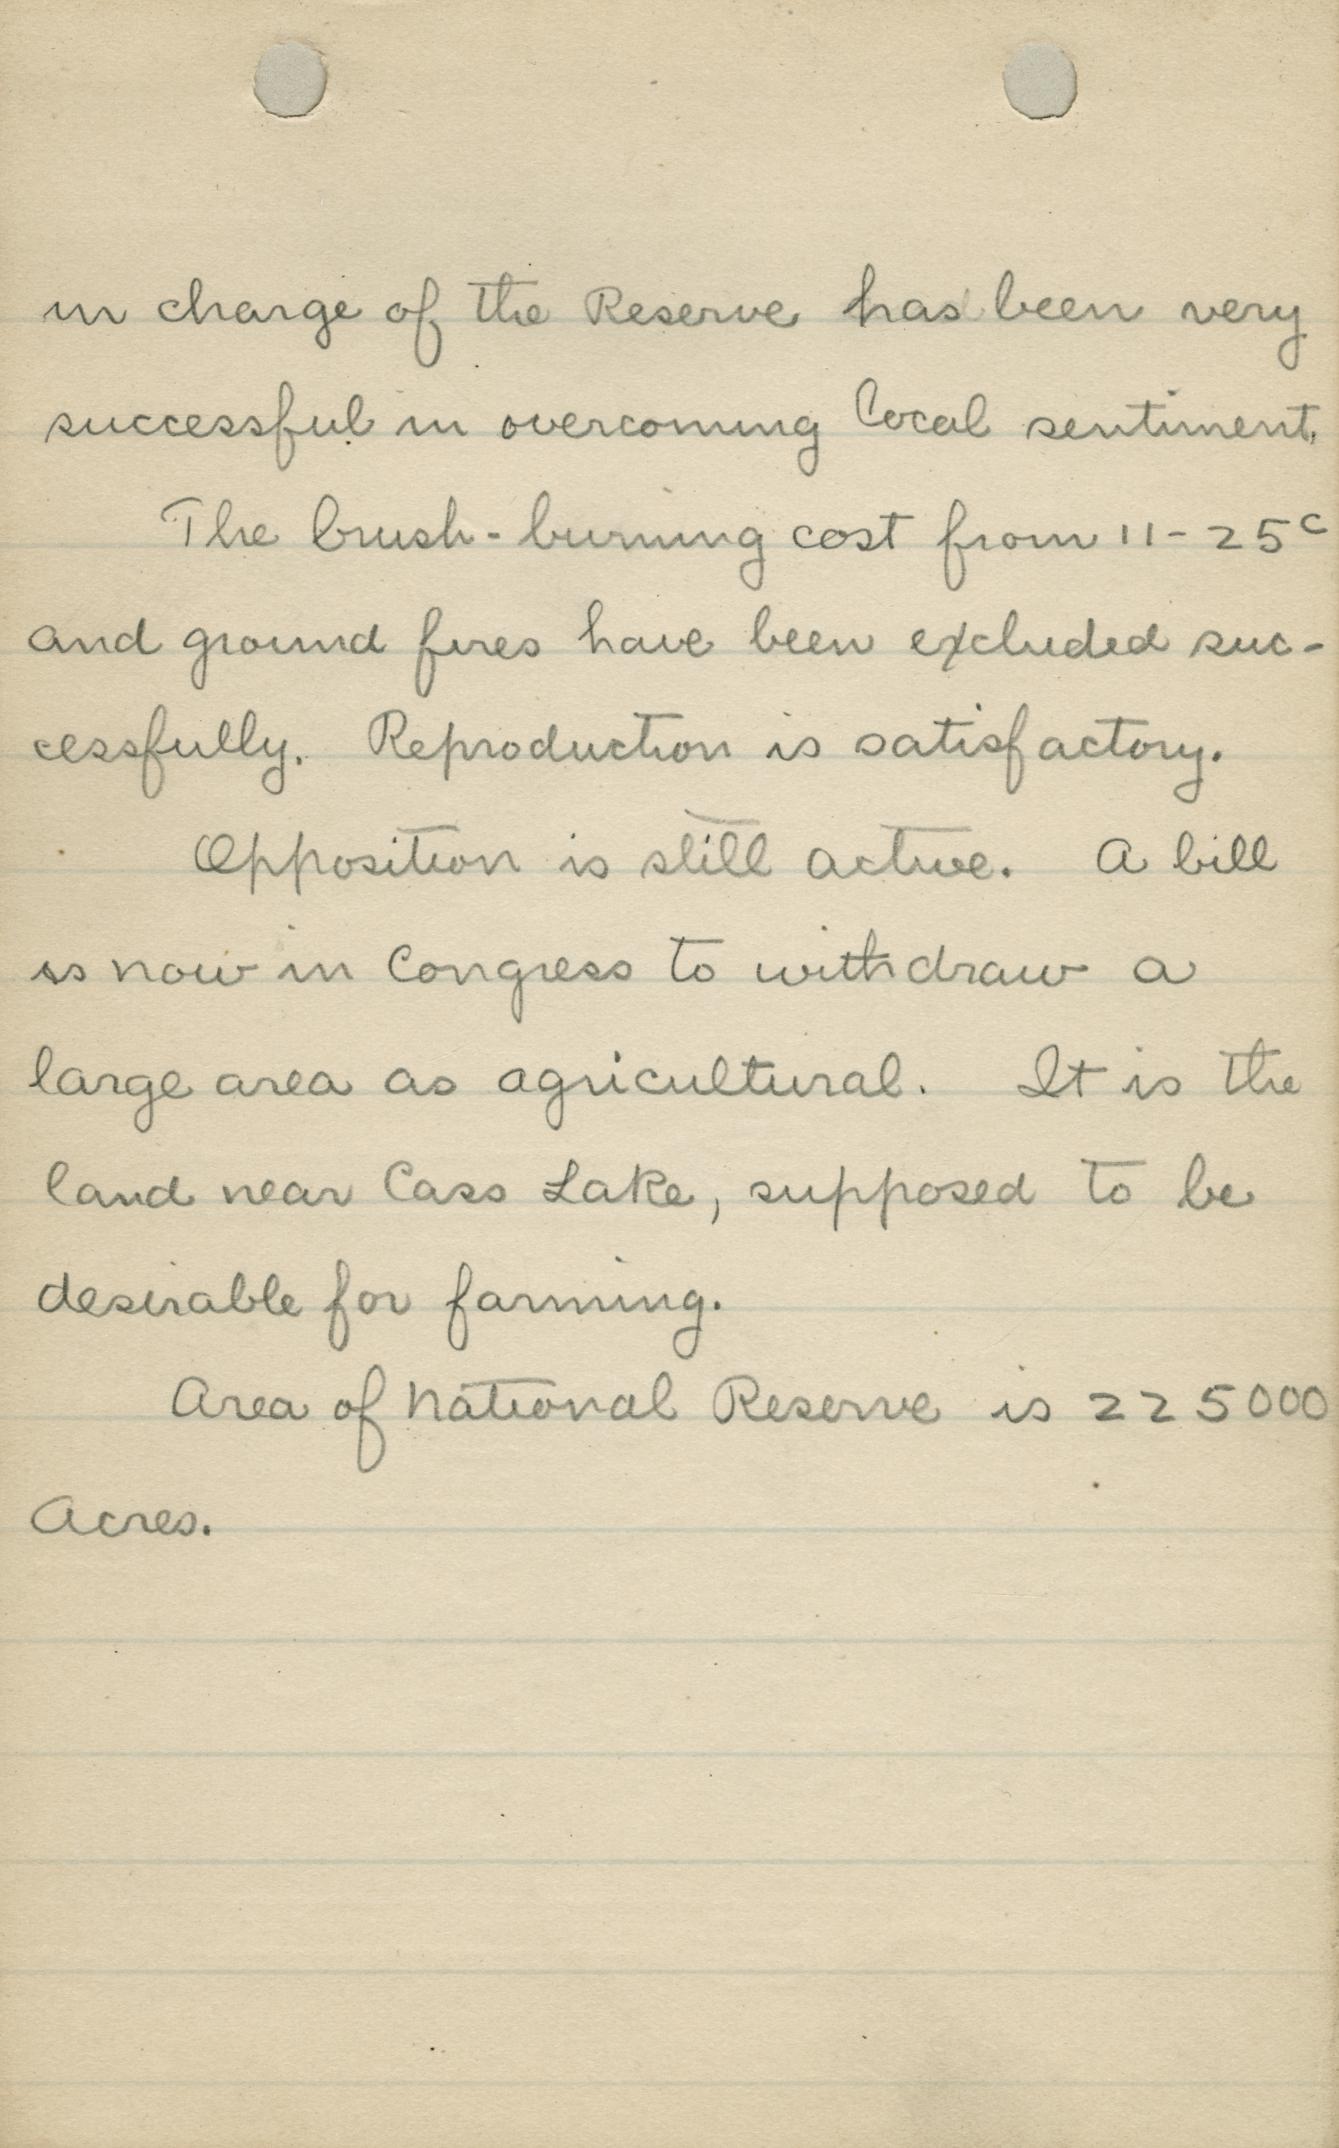 in charge of the Reserve has been very
successful in overcoming local sentiment.
The brush-burning cost from 11-25c
and ground fires have been excluded suc-
cessfully. Reproduction is satisfactory.
Opposition is still active. A bill
is now in Congress to withdraw a
large area as agricultural. It is the
land near Cass Lake, supposed to be
desirable for farming.
Area of National Reserve is 225000
Acres.